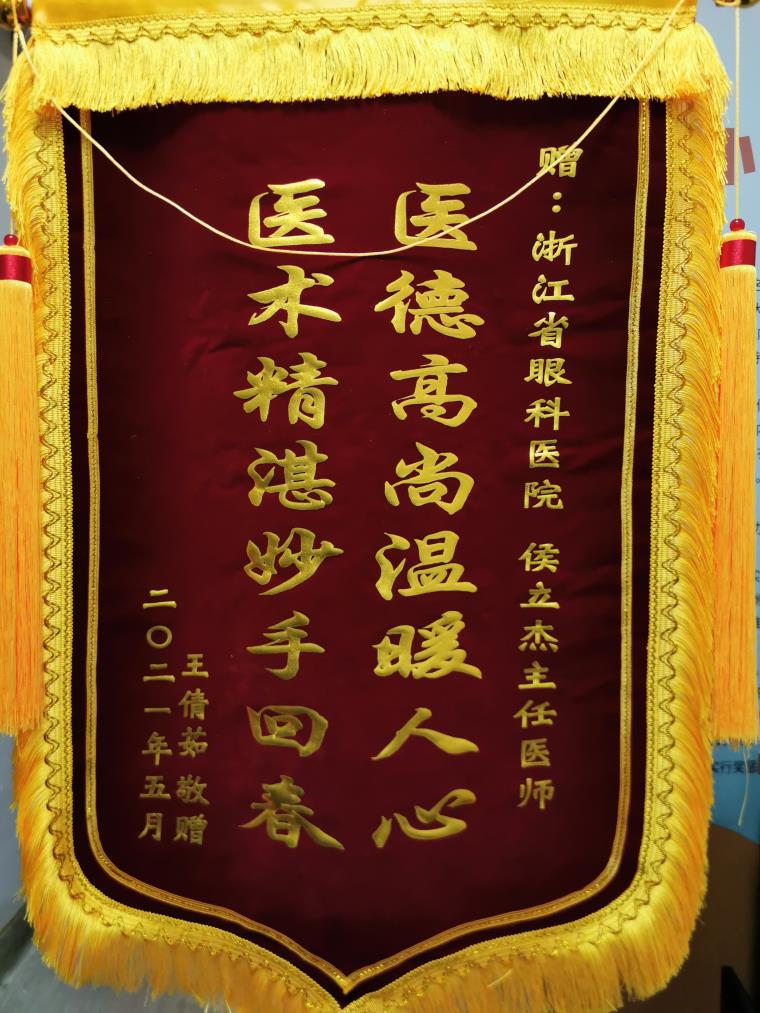 赠：浙江省眼科医院 侯立杰主任医师
医德高尚温暖人心
医术精湛妙手回春
王倩茹敬赠
二〇二一年五月